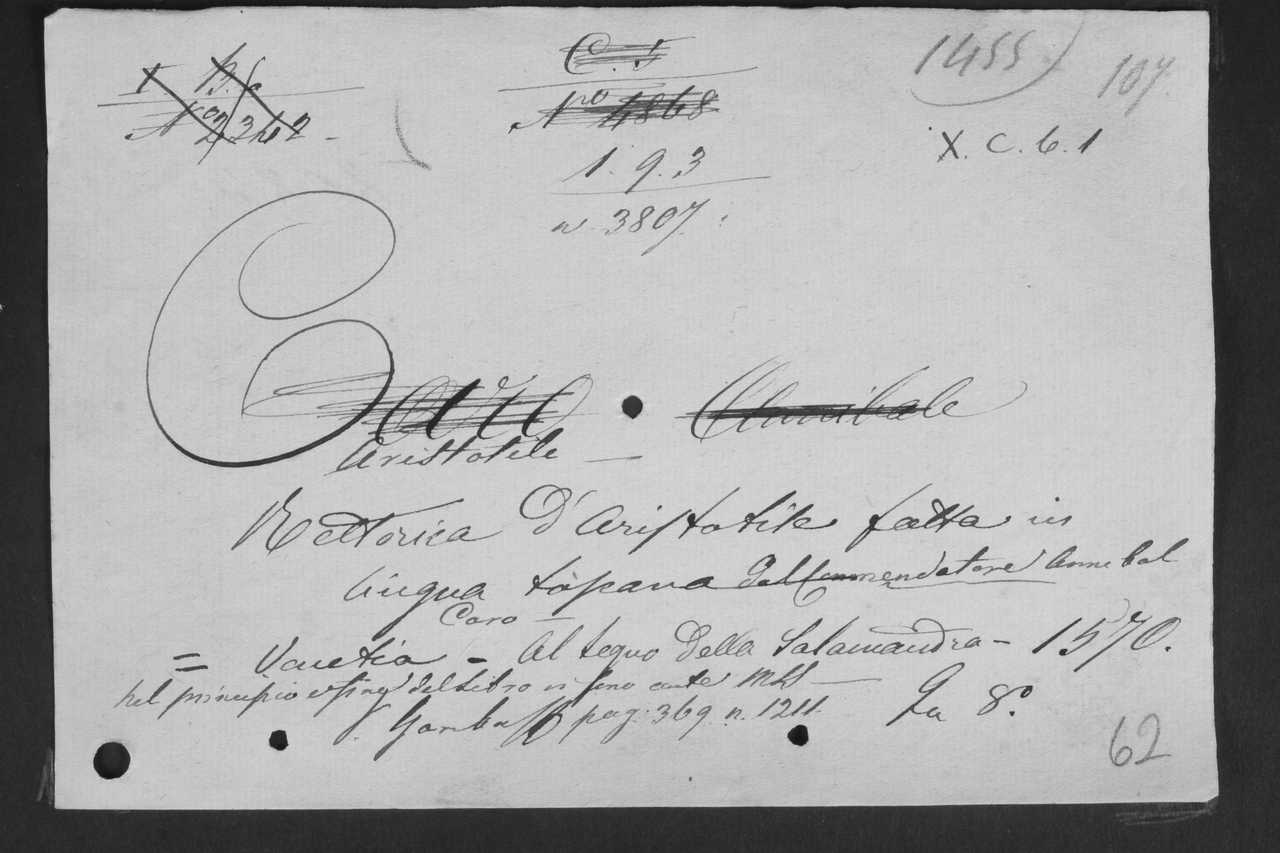 I B. 6
N° 2362
C. 5
Nro 4868
1. 9. 3
n. 3807.
1455
107.
X. C. 6. 1
Caro Annibale
Aristotile —
Rettorica D'Aristotile fatta in
lingua toscana dal Commendatore Annibal
Caro —
= Venetia - Al segno Della Salamandra - 1570.
Nel principio e fine del Libro vi sono carte MSS —
Gamba pag. 369. n. 1211. In 8.°
62